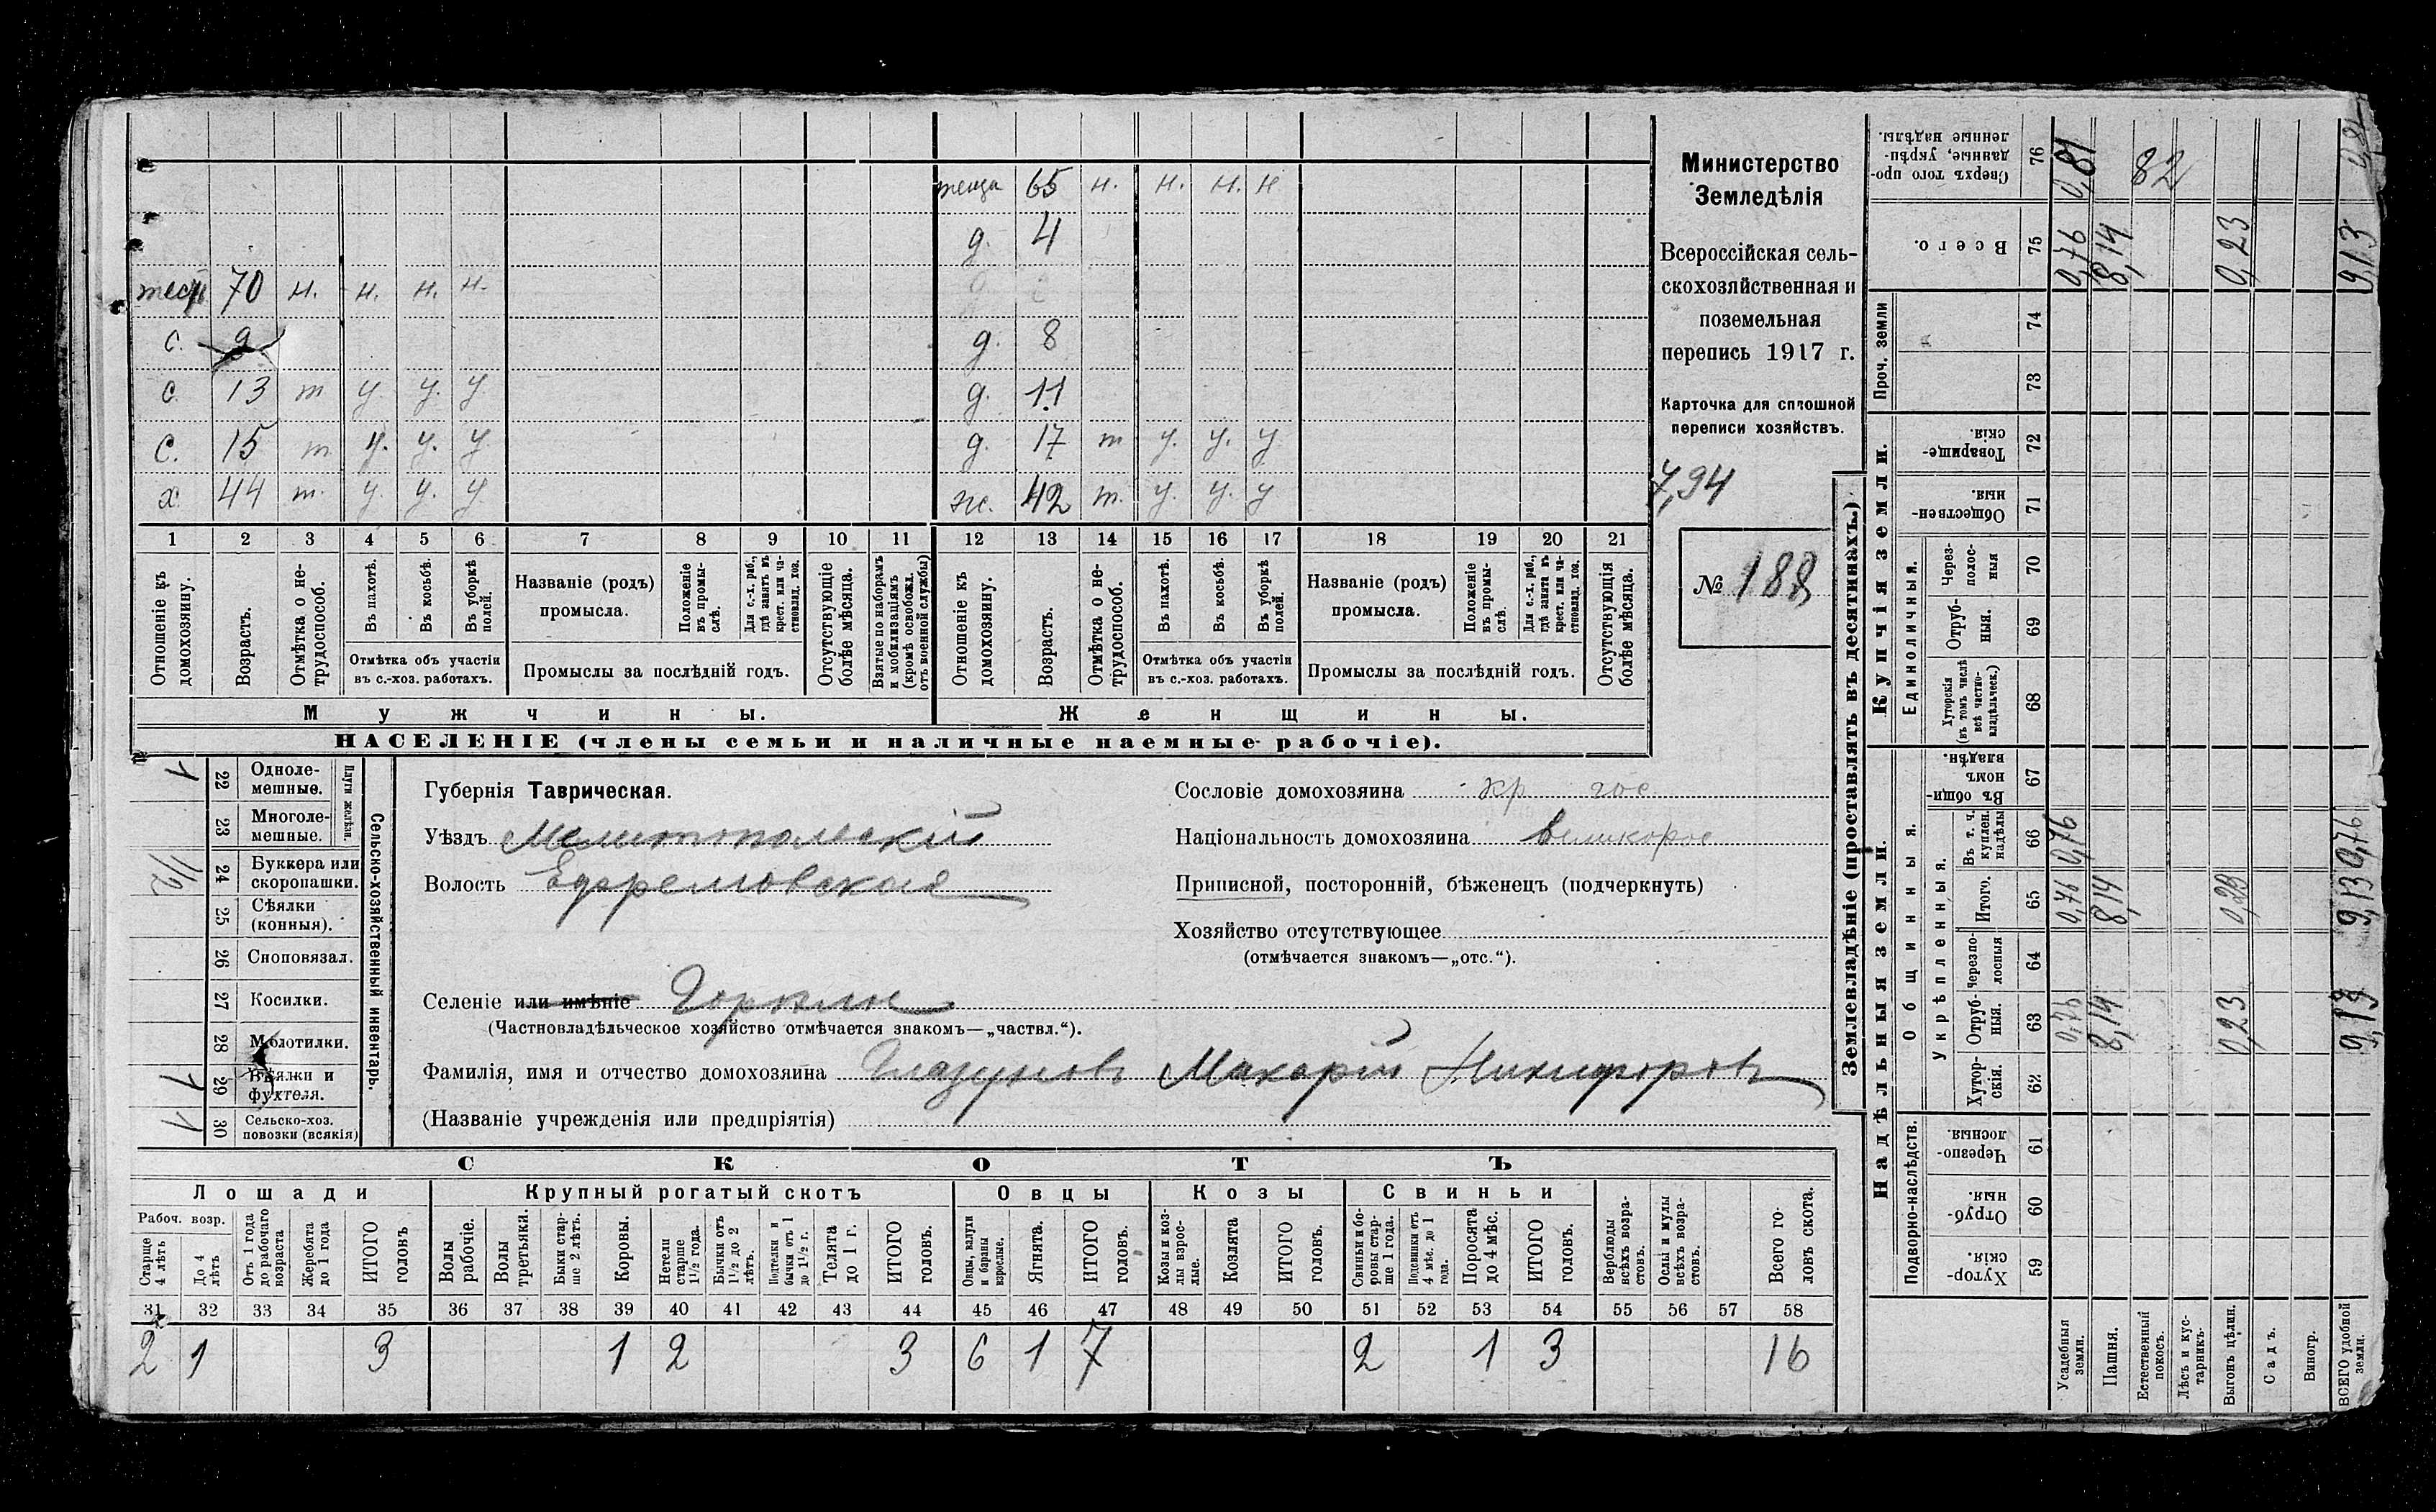 теща 65 н. н. н. н
д. 4
тесть 70 н. н. н. н.
с. 9 д. 8
с. 13 т у. у. у д. 11
с. 15 т у. у. у д. 17 т у. у. у
х 44 т. у. у. у ж. 42 т. у. у. у
1 2 3 4 5 6 7 8 9 10 11 12 13 14 15 16 17 18 19 20 21
Отношеніе къ домохозяину.
Возрастъ.
Отмѣтка о нетрудоспособ.
Въ пахотѣ.
Въ косьбѣ.
Въ уборкѣ полей.
Отмѣтка объ участіи
въ с.-хоз. работахъ.
Названіе (родъ)
промысла.
Положеніе въ промыслѣ.
Для с.-х. раб., гдѣ занятъ въ крест. или частновлад. хоз.
Промыслы за послѣдній годъ.
Отсутствующіе болѣе мѣсяца.
Взятые по наборамъ и мобилизаціямъ (кромѣ освобожд. отъ военной службы)
Отношеніе къ домохозяину.
Возрастъ.
Отмѣтка о нетрудоспособ.
Въ пахотѣ.
Въ косьбѣ.
Въ уборкѣ полей.
Отмѣтка объ участіи
въ с.-хоз. работахъ.
Названіе (родъ)
промысла.
Положеніе въ промыслѣ.
Для с.-х. раб., гдѣ занята въ крест. или частновлад. хоз.
Промыслы за послѣдній годъ.
Отсутствующія болѣе мѣсяца.
Мужчины. Женщины.
НАСЕЛЕНІЕ (члены семьи и наличные наемные рабочіе).
Министерство
Земледѣлія
Всероссійская сель-
скохозяйственная и
поземельная
перепись 1917 г.
Карточка для сплошной
переписи хозяйствъ.
7,94
№ 188
1 22 Одноле-
мешные.
23 Многоле-
мешные.
Плуги желѣзн.
1/2 24 Буккера или
скоропашки.
25 Сѣялки
(конныя).
26 Сноповязал.
27 Косилки.
28 Молотилки.
1 29 Вѣялки и
фухтеля.
1 30 Сельско-хоз.
повозки (всякія)
Сельско-хозяйственный инвентарь.
Губернія Таврическая.
Уѣздъ Мелитопольскій
Волость Ефремовская
Селеніе или имѣніе Горялое
(Частновладѣльческое хозяйство отмѣчается знакомъ—„частвл.“).
Фамилія, имя и отчество домохозяина Глазуновъ Макарій Никифоровъ
(Названіе учрежденія или предпріятія)
Сословіе домохозяина кр гос
Національность домохозяина великорос
Приписной, посторонній, бѣженецъ (подчеркнуть)
Хозяйство отсутствующее
(отмѣчается знакомъ—„отс.“).
СКОТЪ
Лошади Крупный рогатый скотъ Овцы Козы Свиньи
Рабоч. возр.
Старше 4 лѣтъ
До 4 лѣтъ
Отъ 1 года до рабочаго возраста
Жеребята до 1 года
ИТОГО головъ
Волы рабочіе.
Волы третьяки.
Быки старше 2 лѣтъ.
Коровы.
Нетели старше 1 1/2 года.
Бычки отъ 1 1/2 до 2 лѣтъ.
Подтелки и бычки отъ 1 до 1 1/2 г.
Телята до 1 г.
ИТОГО головъ.
Овцы, валухи и бараны взрослые.
Ягнята.
ИТОГО головъ.
Козы и козлы взрослые.
Козлята
ИТОГО головъ.
Свиньи и боровы старше 1 года.
Подсвинки отъ 4 мѣс. до 1 года.
Поросята до 4 мѣс.
ИТОГО головъ.
Верблюды всѣхъ возрастовъ.
Ослы и мулы всѣхъ возрастовъ.
Всего головъ скота.
31 32 33 34 35 36 37 38 39 40 41 42 43 44 45 46 47 48 49 50 51 52 53 54 55 56 57 58
2 1 3 1 2 3 6 1 7 2 1 3 16
Землевладѣніе (проставлять въ десятинахъ.)
Надѣльныя земли. Купчія земли. Проч. земли
Подворно-наслѣдств.
Общинныя.
Укрѣпленныя.
Единоличныя.
Хуторскія. 59
Отрубныя. 60
Черезполосныя. 61
Хуторскія. 62
Отрубныя. 63
Черезполосныя 64
Итого. 65
Въ т. ч. куплен. надѣлы 66
Въ общиномъ владѣн. 67
Хуторскія (въ томъ числѣ всѣ частновладѣльческ.) 68
Отрубныя. 69
Черезполосныя 70
Общественныя. 71
Товарищескія. 72
73
74
Всего. 75
Сверхъ того проданные, укрѣпленные надѣлы. 76
Усадебныя земли. 0,76 0,76 0,76 0,76 0,81
Пашня. 8,14 8,14 8,14
Естественный покосъ. 82
Лѣсъ и кустарникъ.
Выгонъ цѣлин. 0,23 0,23 0,23
Садъ.
Виногр.
ВСЕГО удобной земли. 9,13 9,13 0,76 9,13